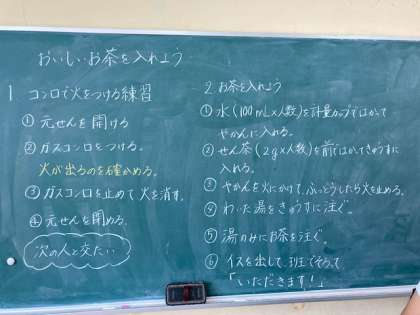 おいしいお茶を入れよう
1 コンロで火をつける練習
① 元せんを開ける
② ガスコンロをつける。
火が出るのを確かめる。
③ ガスコンロを止めて火を消す。
④ 元せんを閉める。
次の人と交たい
2. お茶を入れよう
① 水(100mL×人数)を計量カップではかって
やかんに入れる。
② せん茶(2g×人数)を前ではかってきゅうすに
入れる。
③ やかんを火にかけて、ふっとうしたら火を止める。
④ わいた湯をきゅうすに注ぐ。
⑤ 湯のみにお茶を注ぐ。
⑥ イスを出して、班でそろって
「いただきます!」